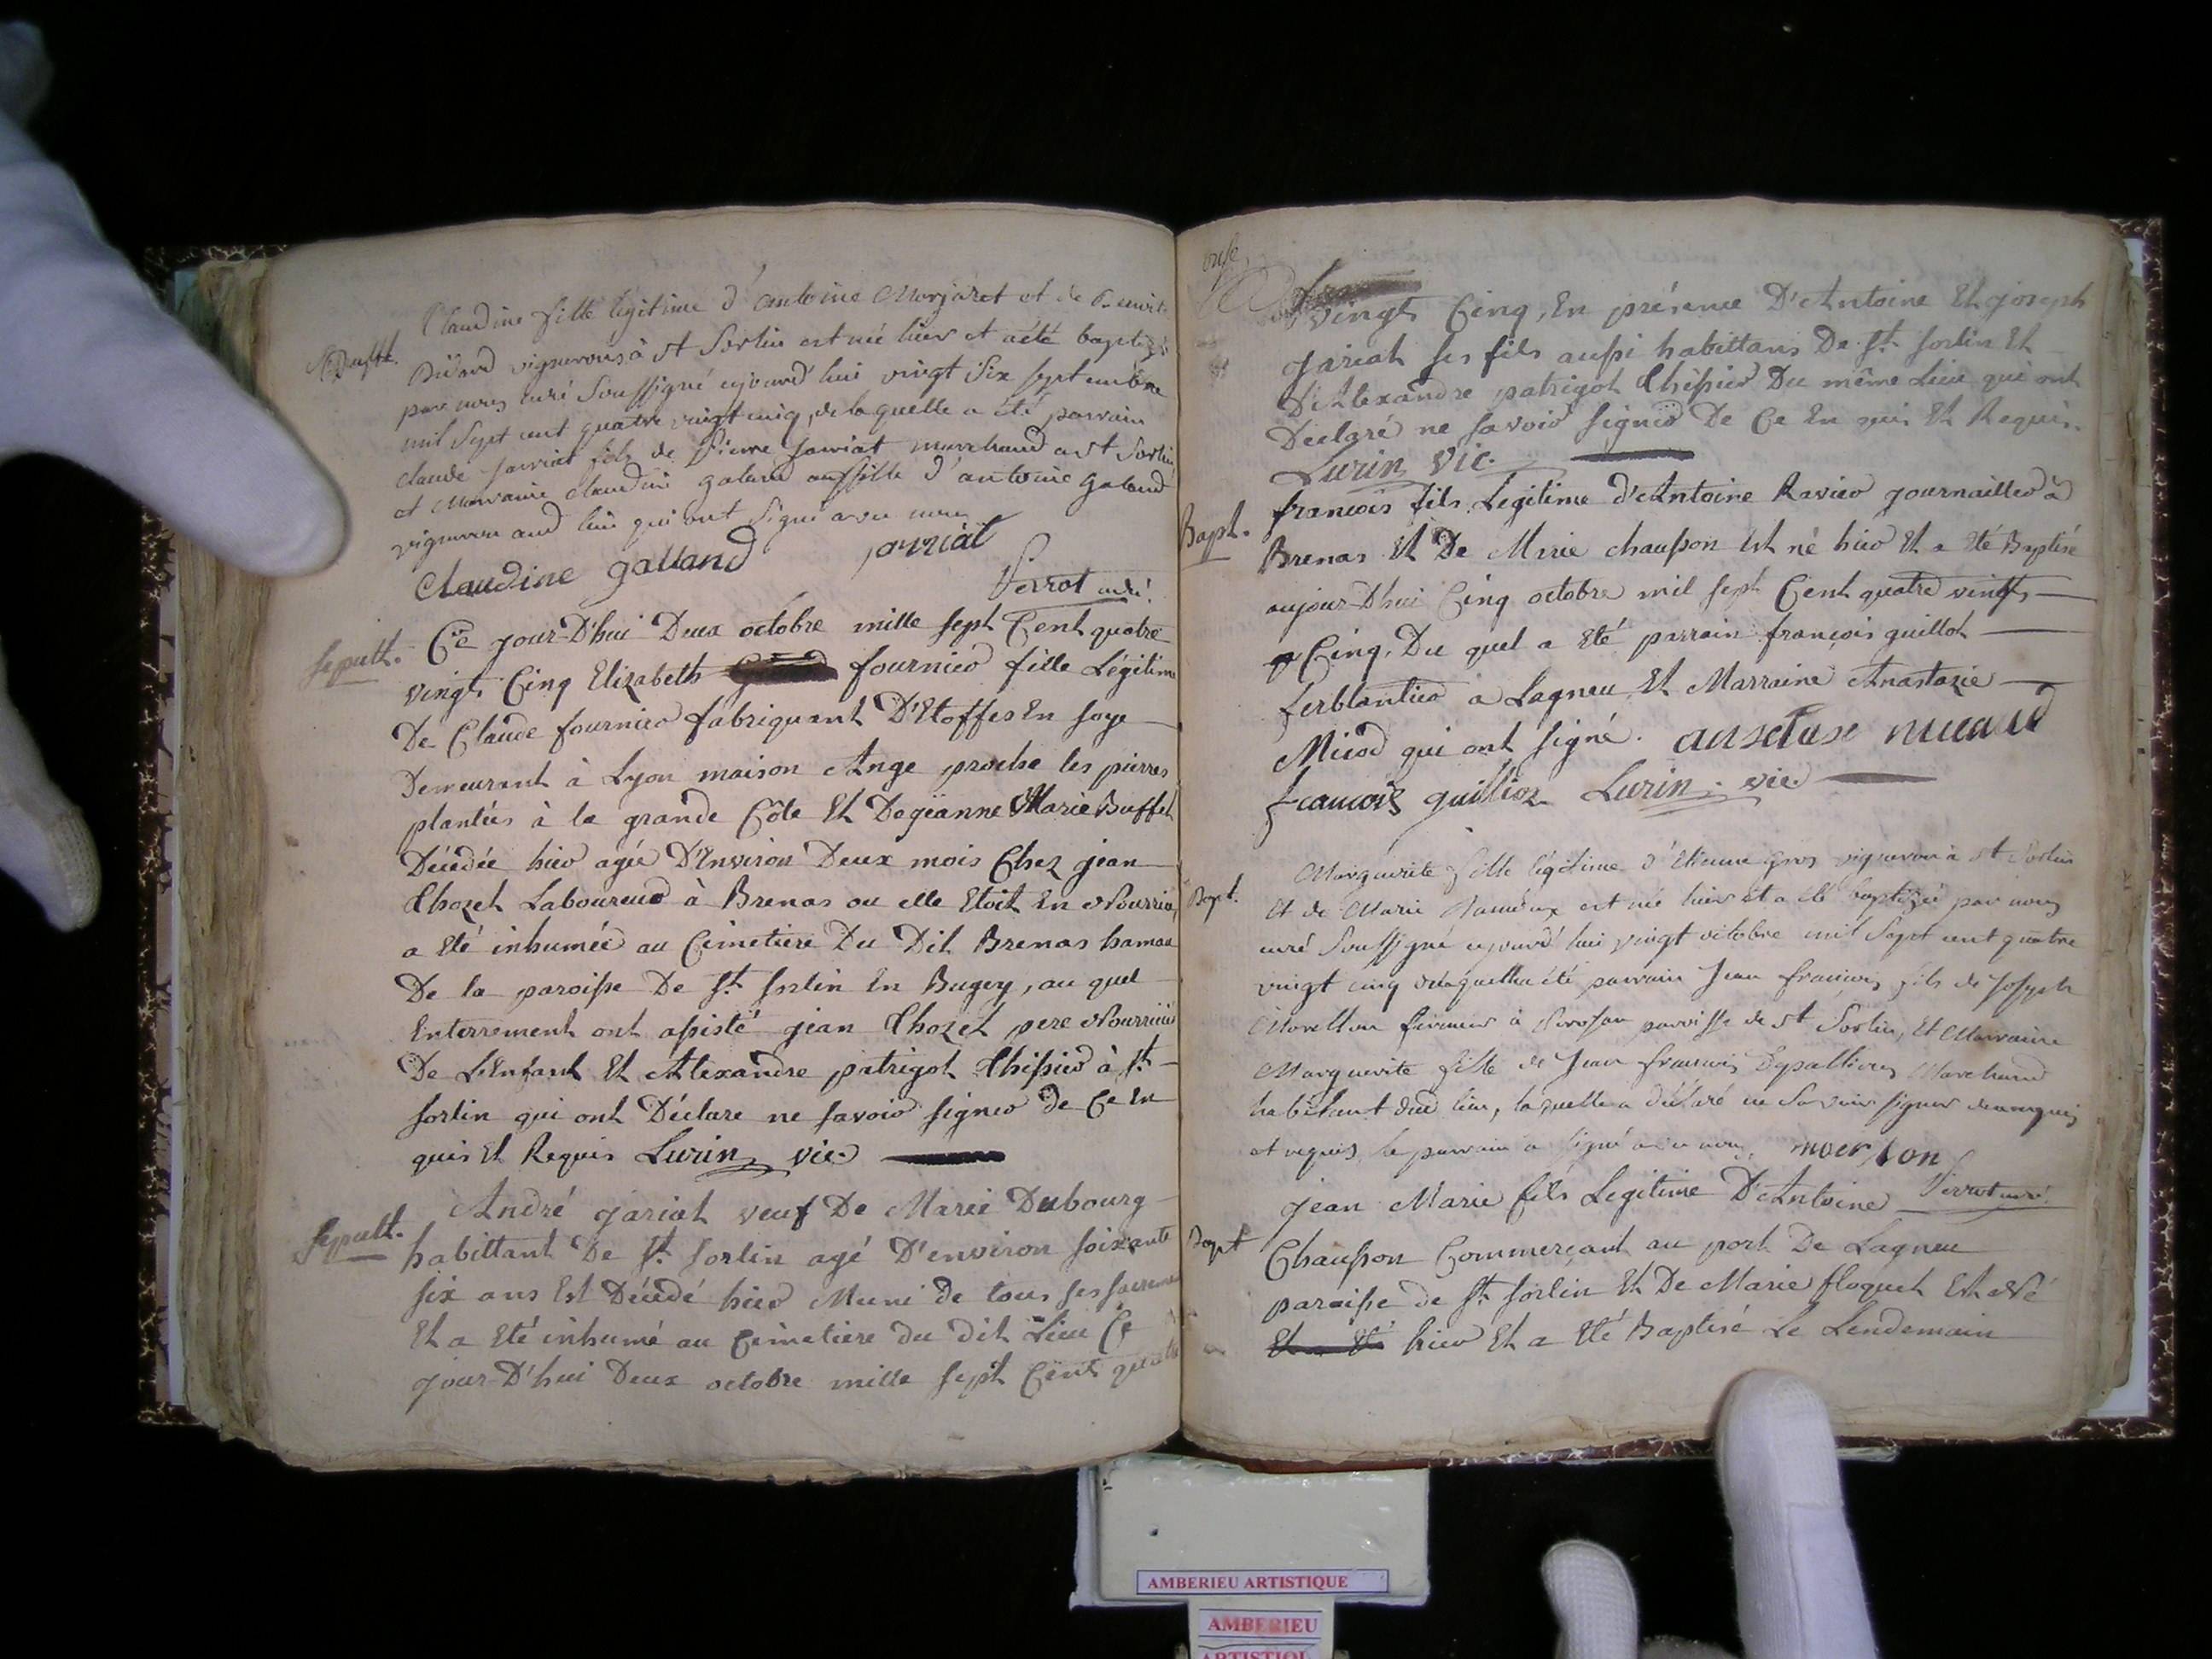 Claudine fille legitime d'antoine Morjaret et de Benoite
Bapt.
vigneron à st Sorlin est née hier et a été baptizée
par nous curé soussigné aujourd'hui vingt six septembre
mil sept cent quatre vingt cinq, de laquelle a été parrain
claude Jarriat fils de Pierre Jarriat marchand a st Sorlin
et Marraine claudine galand aussi fille d'antoine galand
vigneron aud lieu qui ont signé avec nous
Claudine galland jarriat
Perrot curé
Sepult.
Ce jour-D'hui Deux octobre mille sept Cent quatre
vingt Cinq Elizabeth fournier fille Légitime
De Claude fournier fabriquant D'Etoffes En soye
Demeurant à Lyon maison Ange proche les pierres
plantées à la grande Côte Et De jeanne Marie Buffet
Décédée hier agée D'Environ Deux mois Chez jean
Chozet Laboureur à Brenas ou elle Etoit En Nourrice,
a Eté inhumée au Cimetiere Du Dit Brenas hamau
De la paroisse De St Sorlin En Bugey, au quel
Enterrement ont assisté jean Chozet pere Nourricier
De L'Enfant Et Alexandre patrigot Thissier à St
Sorlin qui ont Déclare ne savoir signer de Ce En
quis Et Requis Lurin vic.
Sepult.
André jariat veuf De Marie Dubourg
habittant De St Sorlin agé D'environ soixante
six ans Est Décédé hier Muni de tous ses sacremens
Et a Eté inhumé au Cimetiere du dit Lieu Ce
jour-D'hui Deux octobre mille sept Cent quatre
vingt Cinq, En présence D'Antoine Et joseph
jariat ses fils aussi habittans De St Sorlin Et
D'Alexandre patrigot Thissier Du même Lieu qui ont
Déclaré ne savoir signer De Ce En quis Et Requis.
Lurin Vic.
Bapt.
françois fils Legitime d'Antoine Ravier journallier à
Brenas Et De Marie chausson Est né hier Et a Eté Baptisé
aujour-D'hui Cinq octobre mil sept Cent quatre vingt
Cinq, Du quel a Eté parrain françois guillot
ferblantier à Lagneu Et Marraine Anastazie
Micod qui ont signé.
francois guilliot Lurin vic.
Bapt.
Marguerite fille légitime d'Etienne gros vigneron à st Sorlin
Et de Marie est née hier et a été baptizée par nous
curé soussigné aujourd'hui vingt octobre mil sept cent quatre
vingt cinq de laquelle a été parrain Jean françois fils de Joseph
à paroisse de st Sorlin, Et Marraine
Marguerite fille de Jean françois Marchand
habitant dud lieu, laquelle a déclaré ne savoir signer de ce enquis
et requis le parrain a signé avec nous
Perrot curé
Bapt
jean Marie fils Legitime D'Antoine
Chausson Commerçant au port De Lagneu
paroisse de St Sorlin Et De Marie floquet Est Né
hier Et a Eté Baptisé Le Lendemain
AMBERIEU ARTISTIQUE
AMBERIEU